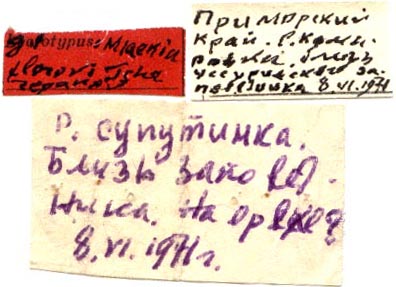 Holotypus: Mlaekia
Tshe
repanov
Приморский
край. Р. Кома-
ровка, близ
Уссурийского за-
поведника 8.VI.1971
Р. Супутинка.
Близь заповед-
ника. На орехе?
8.VI.1971г.